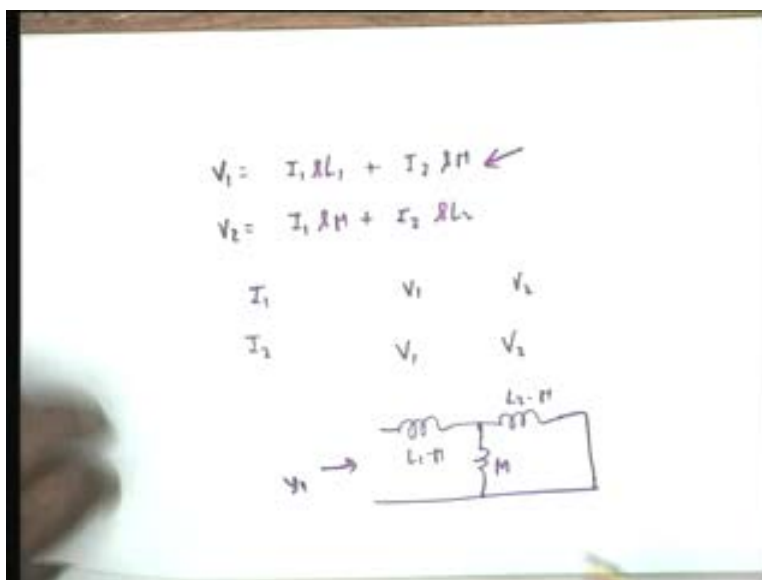 V₁ = I₁ sL₁ + I₂ sM ←
V₂ = I₁ sM + I₂ sL₂
I₁ V₁ V₂
I₂ V₁ V₂
L₂-M
L₁-M
M
y₁ →